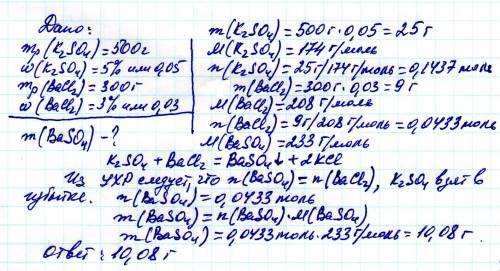 Дано:
mр(K₂SO₄)=500г
ω(K₂SO₄)=5% или 0,05
mр(BaCl₂)=300г
ω(BaCl₂)=3% или 0,03
m(BaSO₄)-?
m(K₂SO₄)=500г·0,05=25г
M(K₂SO₄)=174г/моль
n(K₂SO₄)=25г/174г/моль=0,1437 моль
m(BaCl₂)=300г·0,03=9г
M(BaCl₂)=208г/моль
n(BaCl₂)=9г/208г/моль=0,0433моль
M(BaSO₄)=233г/моль
K₂SO₄+BaCl₂=BaSO₄↓+2KCl
Из УХР следует, что n(BaSO₄)=n(BaCl₂), K₂SO₄ взят в
избытке. n(BaSO₄)=0,0433моль
m(BaSO₄)=n(BaSO₄)·M(BaSO₄)
m(BaSO₄)=0,0433моль·233г/моль=10,08г.
Ответ: 10,08г